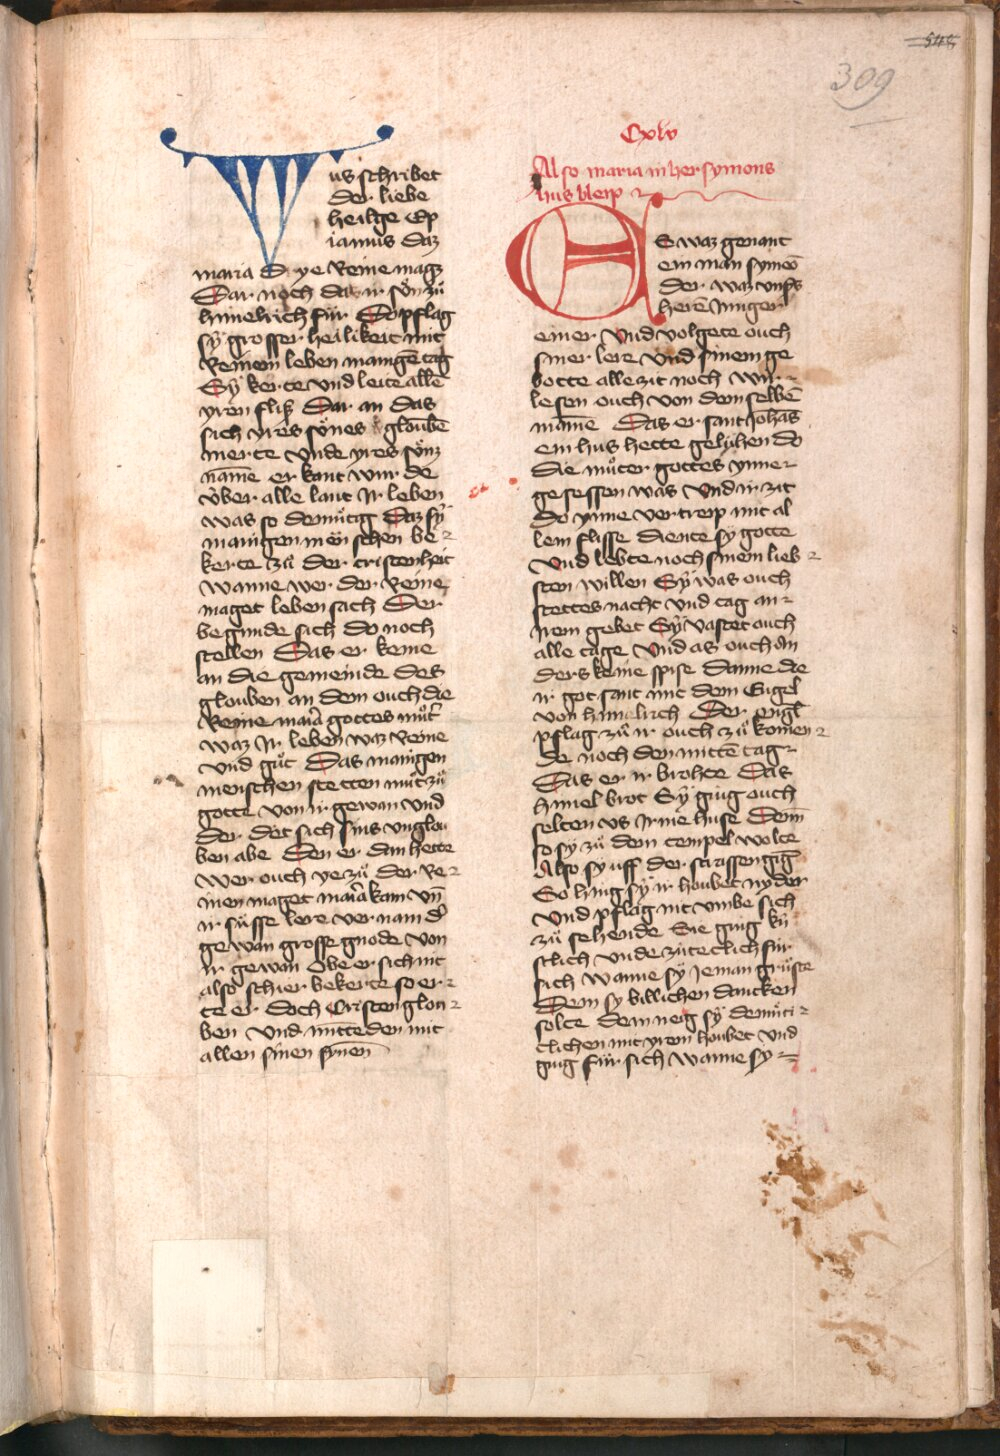 548
309
Vns schribet
der liebe
heilge Ep
iamus daz
maria Dye Reine magz
Dar noch daz ir sön zü
himelrich für Do pflag
sÿ grosser heilikeit mit
Reinem leben mangē tag
Sÿ kerte vnd leite allē
yren fliß Dar an das
sich yres sönes gloubē
merte Vnde yres sönz
namē er kant wur de
vber alle lant Ir leben
was so demütig Daz sÿ
manigen mēnschen be
kerte zü der cristenheit
wanne wer der Reine
maget leben sach Der
begunde sich do noch
stellen Das er keme
an die gemeinde des
glouben an dem ouch die
Reine maria gottes müt̄
waz Ir leben waz reine
vnd güt Das manigen
menschen stetten müt zü
gotte von ir gewan vnd
der det sich sins vnglou
ben abe Den er dan hette
wer ouch ye zü der Re
inen maget maria kam vn̄
ir süsse lere ver nam d̄
gewan grosse gnode von
ir gewan Obe er sich nit
also schier bekerte so er
te er doch Cristenglou
ben vnd mitteden mit
allen sinen synen
Cxlv
Also maria in her symons
hus bleip
ES waz genant
ein man symeō
der waz vnss
herē Iunger
einer Vnd volgete ouch
siner lere Vnd sinem ge
botte alle zit noch wir
lesen ouch von dem selbē
manne Das er sant Johās
ein hus hette gelyhen do
die müter gottes ynne
gesessen was Vnd ir zit
do ynne vertreip mit al
lem flisse diente sy gotte
vnd lebte noch sinem lieb
sten willen Sÿ was ouch
stettes nacht vnd tag an
irem gebet Sÿ vastet ouch
alle tage Vnd as ouch An
ders keine spise danne die
ir got sant mit dem Engel
von himelrich Der engl
pflag zü ir ouch zü komen
de noch den mittē tag
Das er ir brohte Das
himel brot Sÿ ging ouch
selten vs irme huse Denn
so sy zü dem tempel wolte
Also sy uff der strassen gīg
So hing sy ir houbet nyder
vnd pflag nit vmbe sich
zü sehende Sie ging kü
stlich vnde züteclich für
sich wanne sy Ieman grüste
Dem sy billichen dancken
solte dem neig sÿ demüti
clichen mit yrem houbet vnd
ging für sich wanne sy